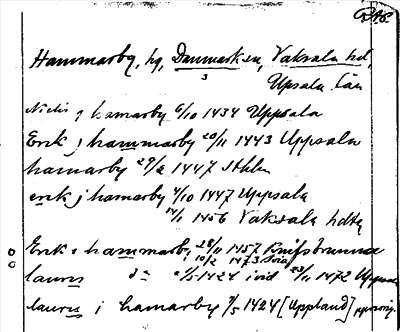 RAS.
Hammarby, hg, Danmarks sn, Vaksala hd,
3
Upsala län
Niclis j hamarby 6/10 1434 Uppsala
Erik j hammarby 20/11 1443 Uppsala
hamarby 29/2 1447 Sthlm
erik j hamarby 4/10 1447 Uppsala
14/1 1456 Vaksala hdtg
Erik i hammarby 28/11 1457
10/2 1473
laurus d:o /5 1424 ivid 23/11 1472
laurus i hamarby 7/5 1424 [Uppland]